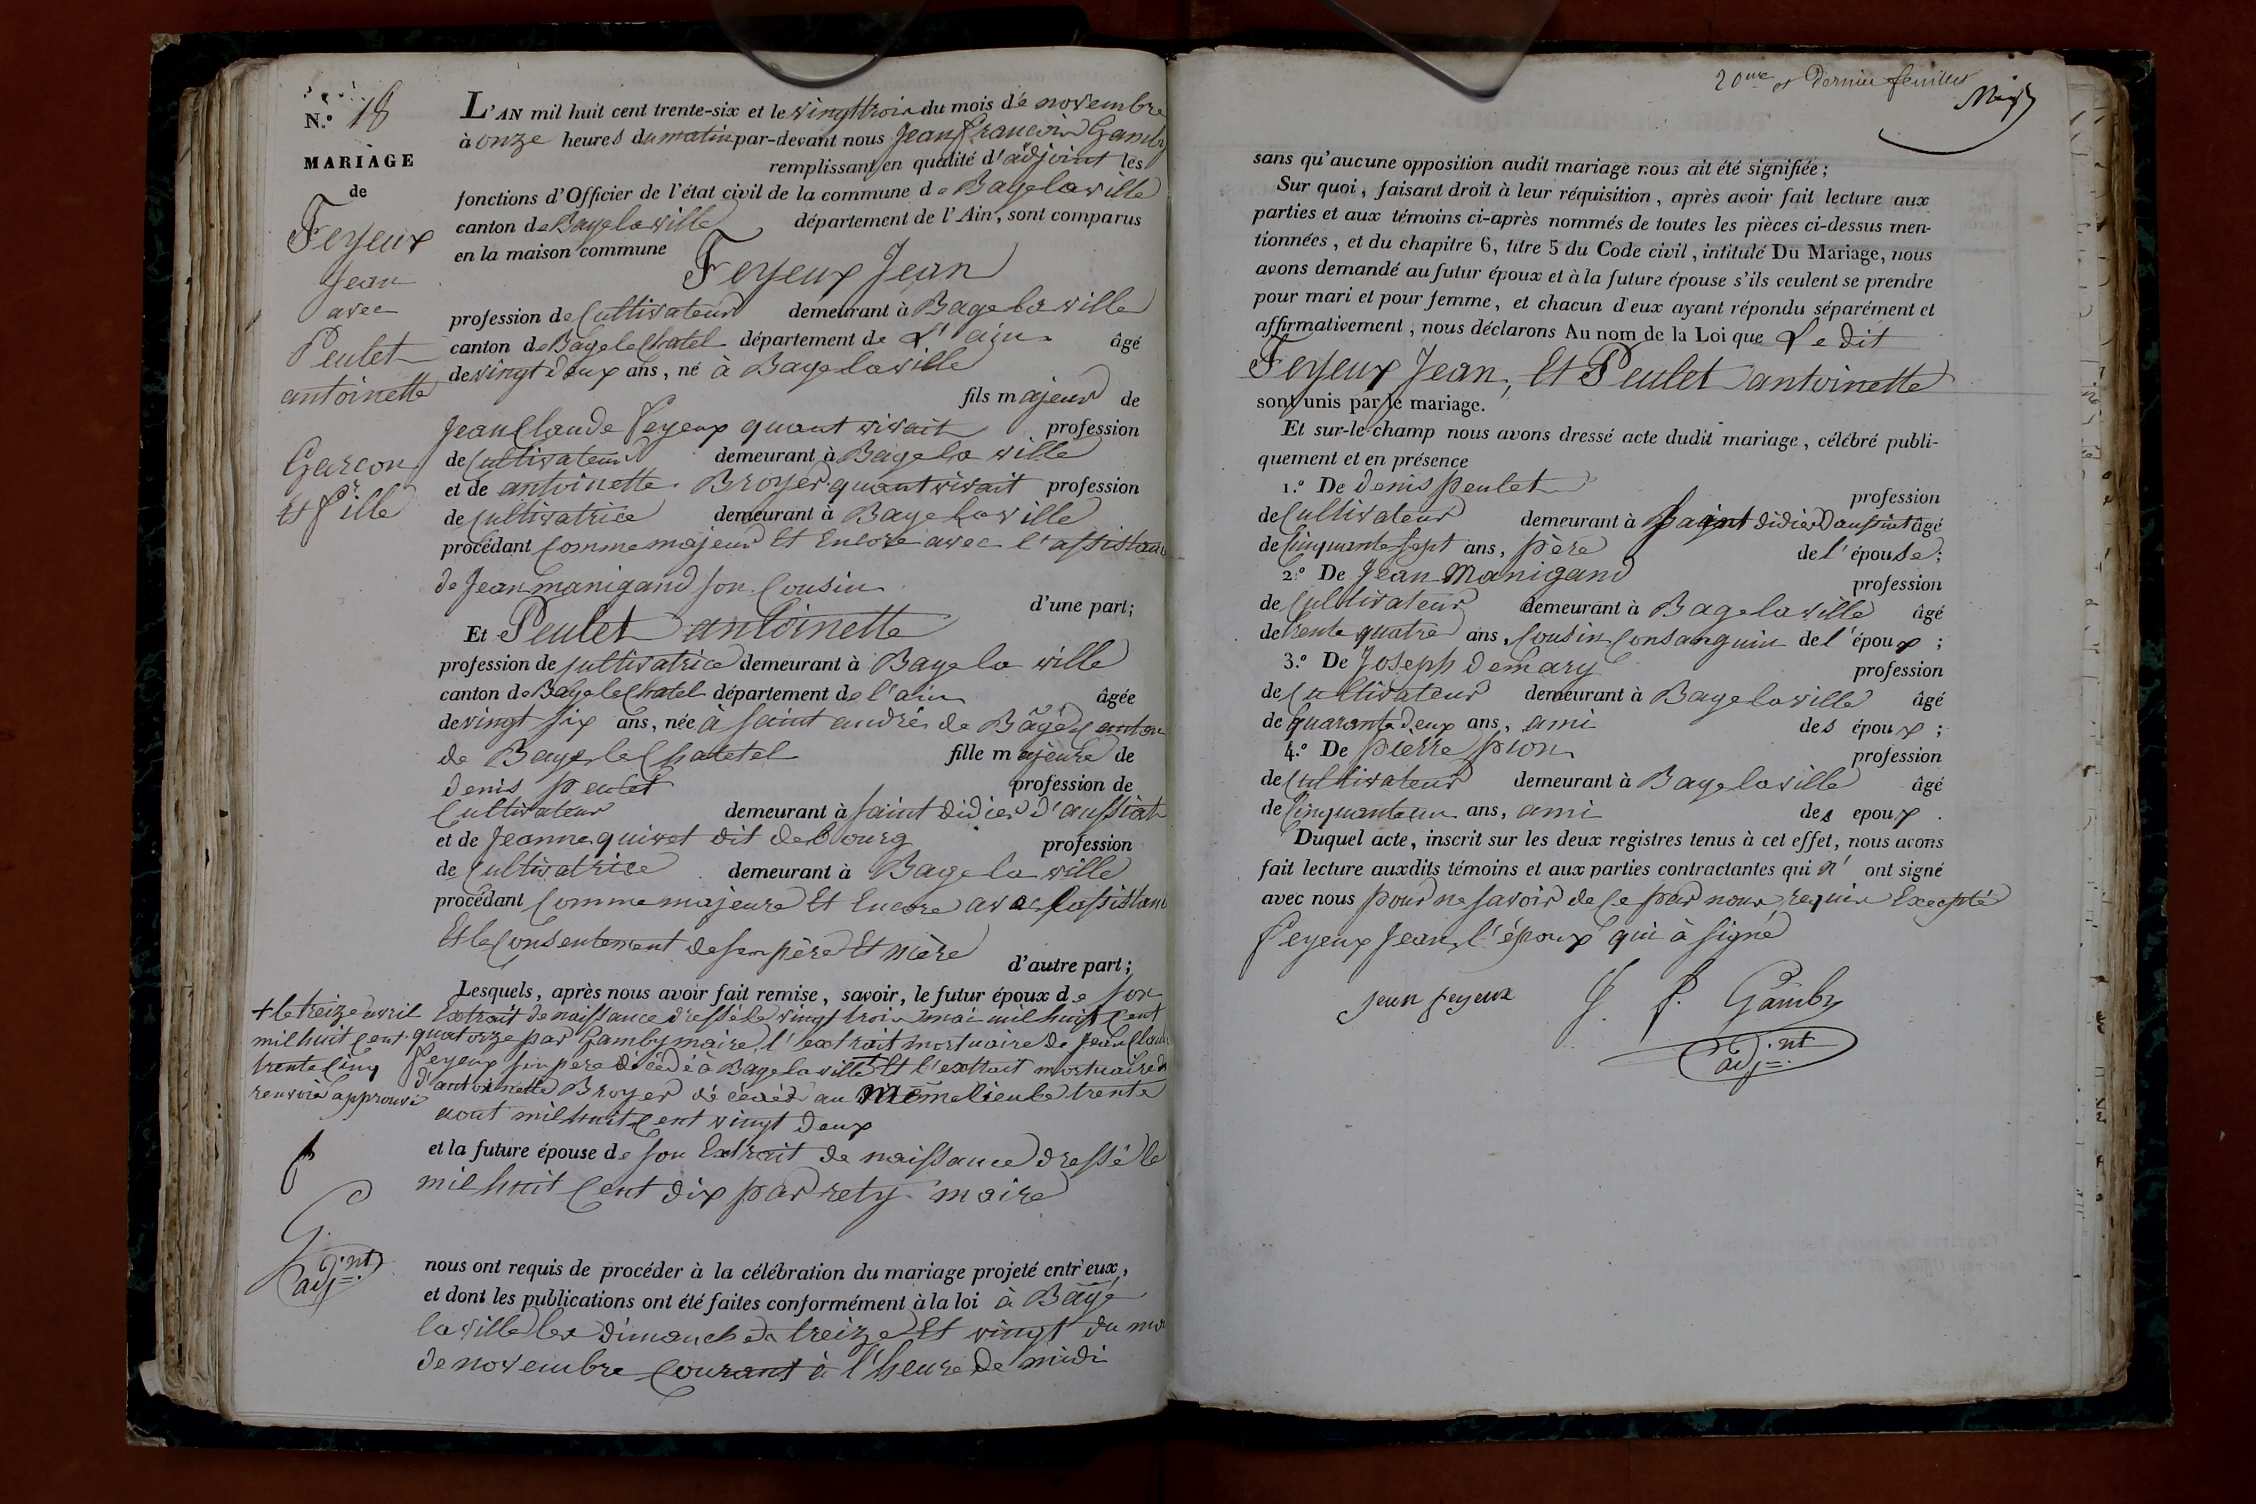 N.º 18
MARIAGE
de
Feyeux
Jean
avec
Peulet
antoinette
Garcon
Et fille
L'AN mil huit cent trente-six et le vingttrois du mois de novembre
à onze heures du matin par-devant nous Jean francois Gamby
remplissant en qualité d'adjoint les
fonctions d'Officier de l'état civil de la commune de Bagelaville
canton de Bagelaville département de l'Ain, sont comparus
en la maison commune Feyeux Jean
profession de Cultivateur demeurant à Bagelaville
canton de Bagelechatel département de L'ain âgé
de vingt deux ans, né à Bagelaville
fils majeur de
Jean Claude feyeux quant vivait profession
de Cultivateur demeurant à Bagela ville
et de antoinette Broyer quant vivait profession
de Cultivatrice demeurant à Bagelaville
procédant Comme majeur Et Encore avec l'assistance
de Jean manigand son Cousin
d'une part;
Et Peulet antoinette
profession de Cultivatrice demeurant à Bage la ville
canton de Bagelechatel département de l'ain âgée
de vingt six ans, née à saint andré de Bagé Canton
de Bage le Chatetel fille majeure de
denis peulet profession de
Cultivateur demeurant à saint didier d'aussiat
et de Jeanne quivet dit debourg profession
de Cultivatrice demeurant à Bage la ville
procédant Comme majeure Et Encore avec l'assistance
Et le Consentement de son père Et mère
d'autre part;
Lesquels, après nous avoir fait remise, savoir, le futur époux de son
Extrait de naissance dressé le vingt trois mai mil huit Cent
quatorze par Gamby maire, l'extrait mortuaire de Jean Claude
feyeux son pere décédé à Bagelaville Et l'extrait mortuaire
d'antoinette Broyer décédé au même lieu le trente
aout mil huit Cent vingt deux
+ le treize avril
mil huit Cent
trente Cinq
renvoi approuvé
f
G.
adj.nt
et la future épouse de son Extrait de naissance dressé le
mil huit Cent dix par rety maire
nous ont requis de procéder à la célébration du mariage projeté entr'eux,
et dont les publications ont été faites conformément à la loi à Bagé
laville les dimanches treize Et vingt du mois
de novembre Courant à l'heure de midi
20me et Dernier feuillet
sans qu'aucune opposition audit mariage nous ait été signifiée;
Sur quoi, faisant droit à leur réquisition, après avoir fait lecture aux
parties et aux témoins ci-après nommés de toutes les pièces ci-dessus men-
tionnées, et du chapitre 6, titre 5 du Code civil, intitulé Du Mariage, nous
avons demandé au futur époux et à la future épouse s'ils veulent se prendre
pour mari et pour femme, et chacun d'eux ayant répondu séparément et
affirmativement, nous déclarons Au nom de la Loi que Le dit
Feyeux Jean, Et Peulet antoinette
sont unis par le mariage.
Et sur-le-champ nous avons dressé acte dudit mariage, célébré publi-
quement et en présence
1.º De denis peulet profession
de Cultivateur demeurant à saint didier daussiat âgé
de Cinquante sept ans, père de l'épouse;
2.º De Jean Manigand profession
de Cultivateur demeurant à Bagelaville âgé
de trente quatre ans, Cousin Consanguin de l'époux;
3.º De Joseph demary profession
de Cultivateur demeurant à Bagelaville âgé
de quarante deux ans, ami des époux;
4.º De pierre pion profession
de Cultivateur demeurant à Bagelaville âgé
de Cinquante un ans, ami des epoux.
Duquel acte, inscrit sur les deux registres tenus à cet effet, nous avons
fait lecture auxdits témoins et aux parties contractantes qui n'ont signé
avec nous pour ne savoir de ce par nous requis Excepté
feyeux Jean l'époux qui à signé
jean feyeux J. f. Gamby
adj.nt